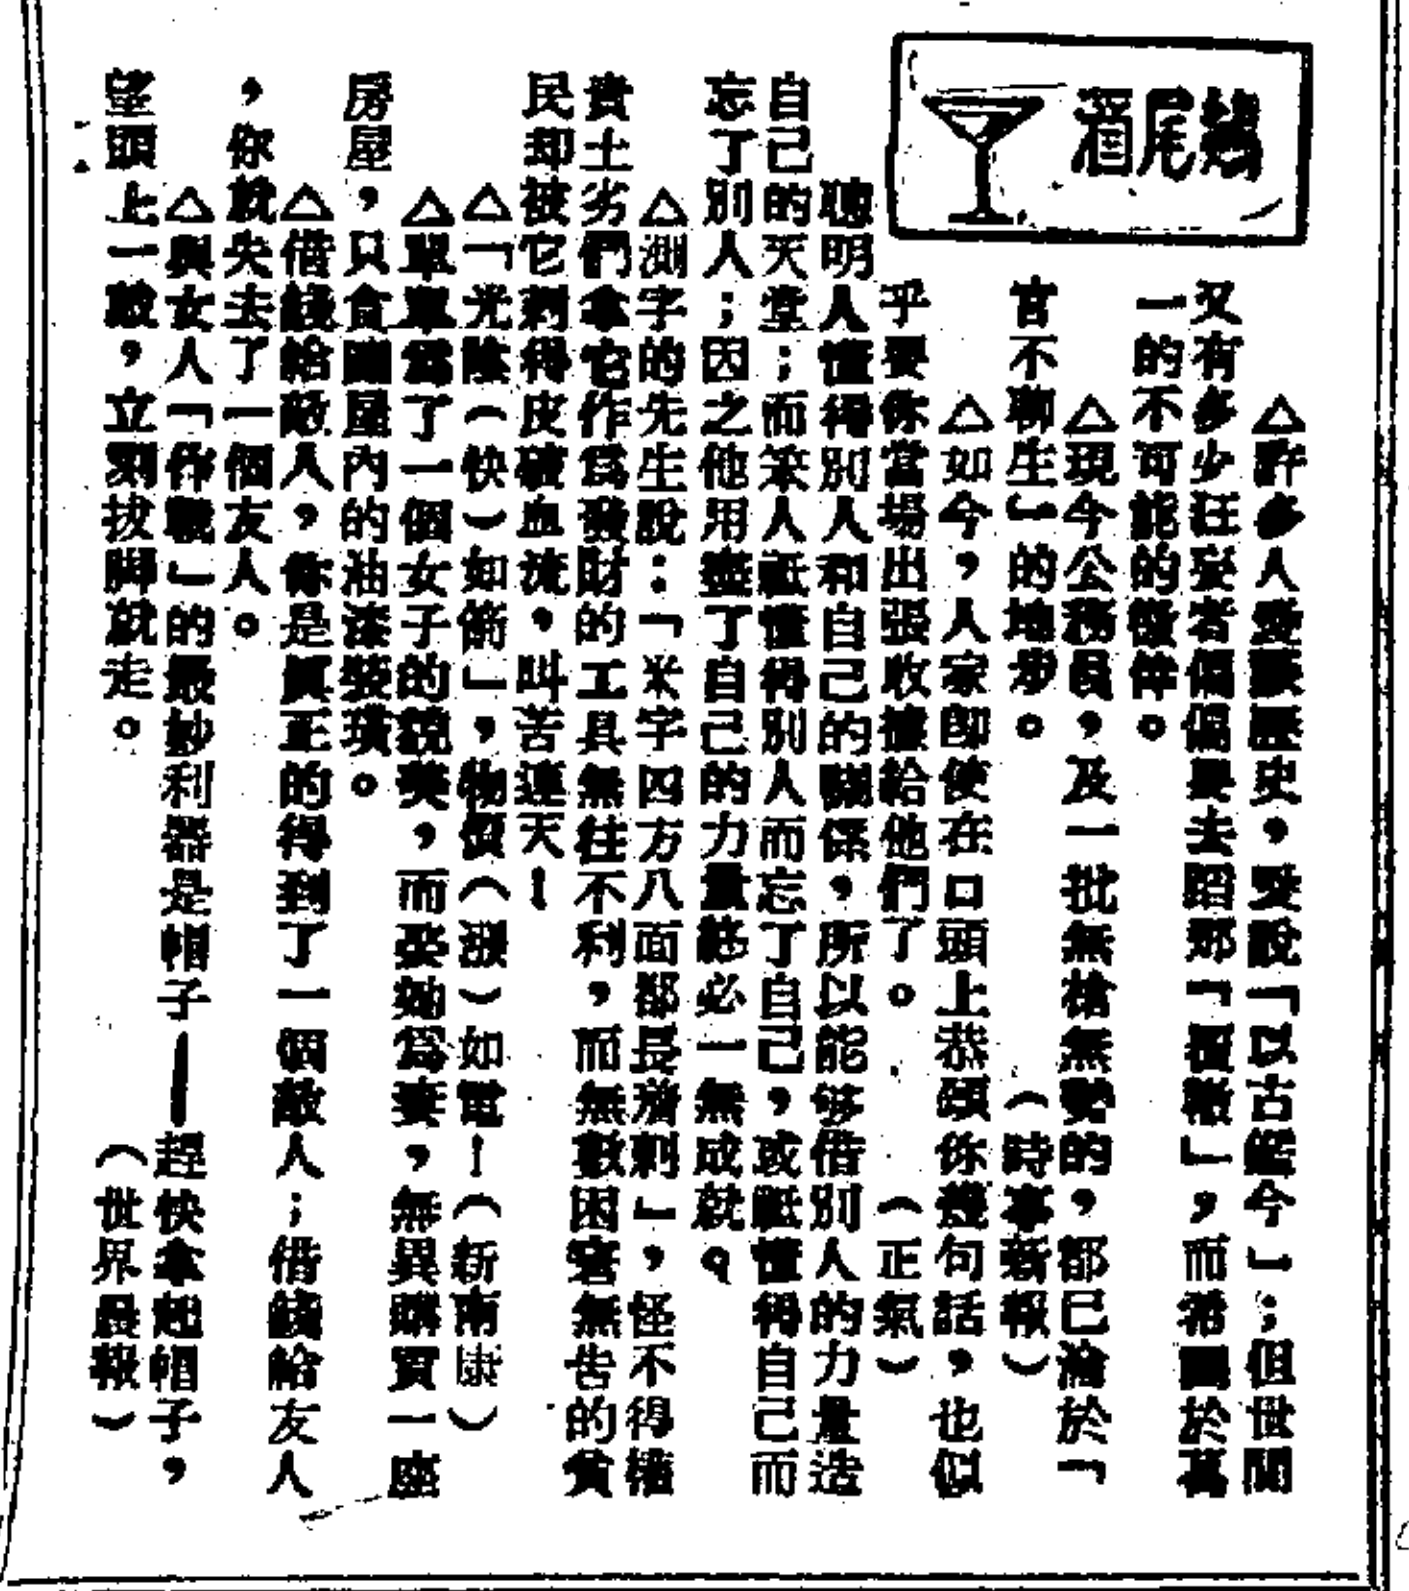 鷄尾酒
△許多人愛讀歷史，愛說「以古鑑今」；但世間
又有多少狂妄者偏偏要去蹈那「覆轍」，而希圖於萬
一的不可能的徼倖。
△現今公務員，及一批無槍無勢的，都已淪於「
官不聊生」的地步。（時事新報）
△如今，人家卽使在口頭上恭頌你幾句話，也似
乎要你當場出張收據給他們了。（正氣）
聰明人懂得別人和自己的關係，所以能够借別人的力量造
自己的天堂；而笨人祗懂得別人而忘了自己，或祗懂得自己而
忘了別人；因之他用盡了自己的力量終必一無成就。
△測字的先生說：「米字四方八面都長着刺」，怪不得權
貴土劣們拿它作爲發財的工具無往不利，而無數困窘無告的貧
民却被它刺得皮破血流，叫苦連天！
△「光陰（快）如箭」，物價（漲）如電！（新南康）
△單單爲了一個女子的貌美，而娶她爲妻，無異購買一座
房屋，只貪圖屋內的油漆裝璜。
△借錢給敵人，你是眞正的得到了一個敵人；借錢給友人
，你就失去了一個友人。
△與女人「作戰」的最妙利器是帽子——趕快拿起帽子，
望頭上一戴，立刻拔脚就走。（世界晨報）